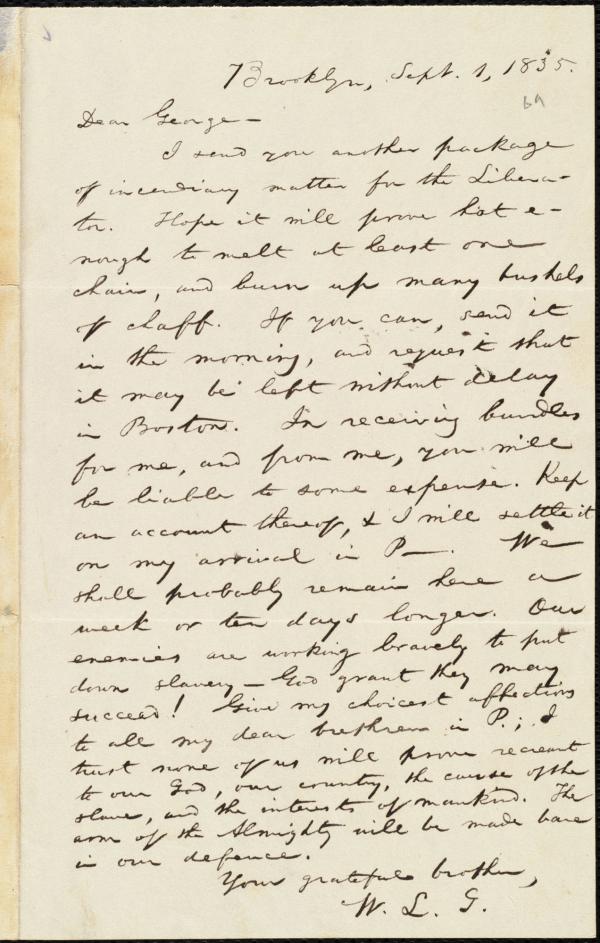 Brooklyn, Sept. 1, 1835.
Dear George—
I send you another package
of incendiary matter for the Libera-
tor. Hope it will prove hot e-
nough to melt at least one
chain, and burn up many bushels
of chaff. If you can, send it
in the morning, and request that
it may be left without delay
in Boston. In receiving bundles
for me, and from me, you will
be liable to some expense. Keep
an account thereof, & I will settle it
on my arrival in P—. We
shall probably remain here a
week or ten days longer. Our
enemies are working bravely to put
down slavery—God grant they may
succeed! Give my choicest affections
to all my dear brethren in P.; I
trust none of us will prove recreant
to our God, our country, the cause of the
slave, and the interests of mankind. The
arm of the Almighty will be made bare
in our defence.
Your grateful brother,
W. L. G.